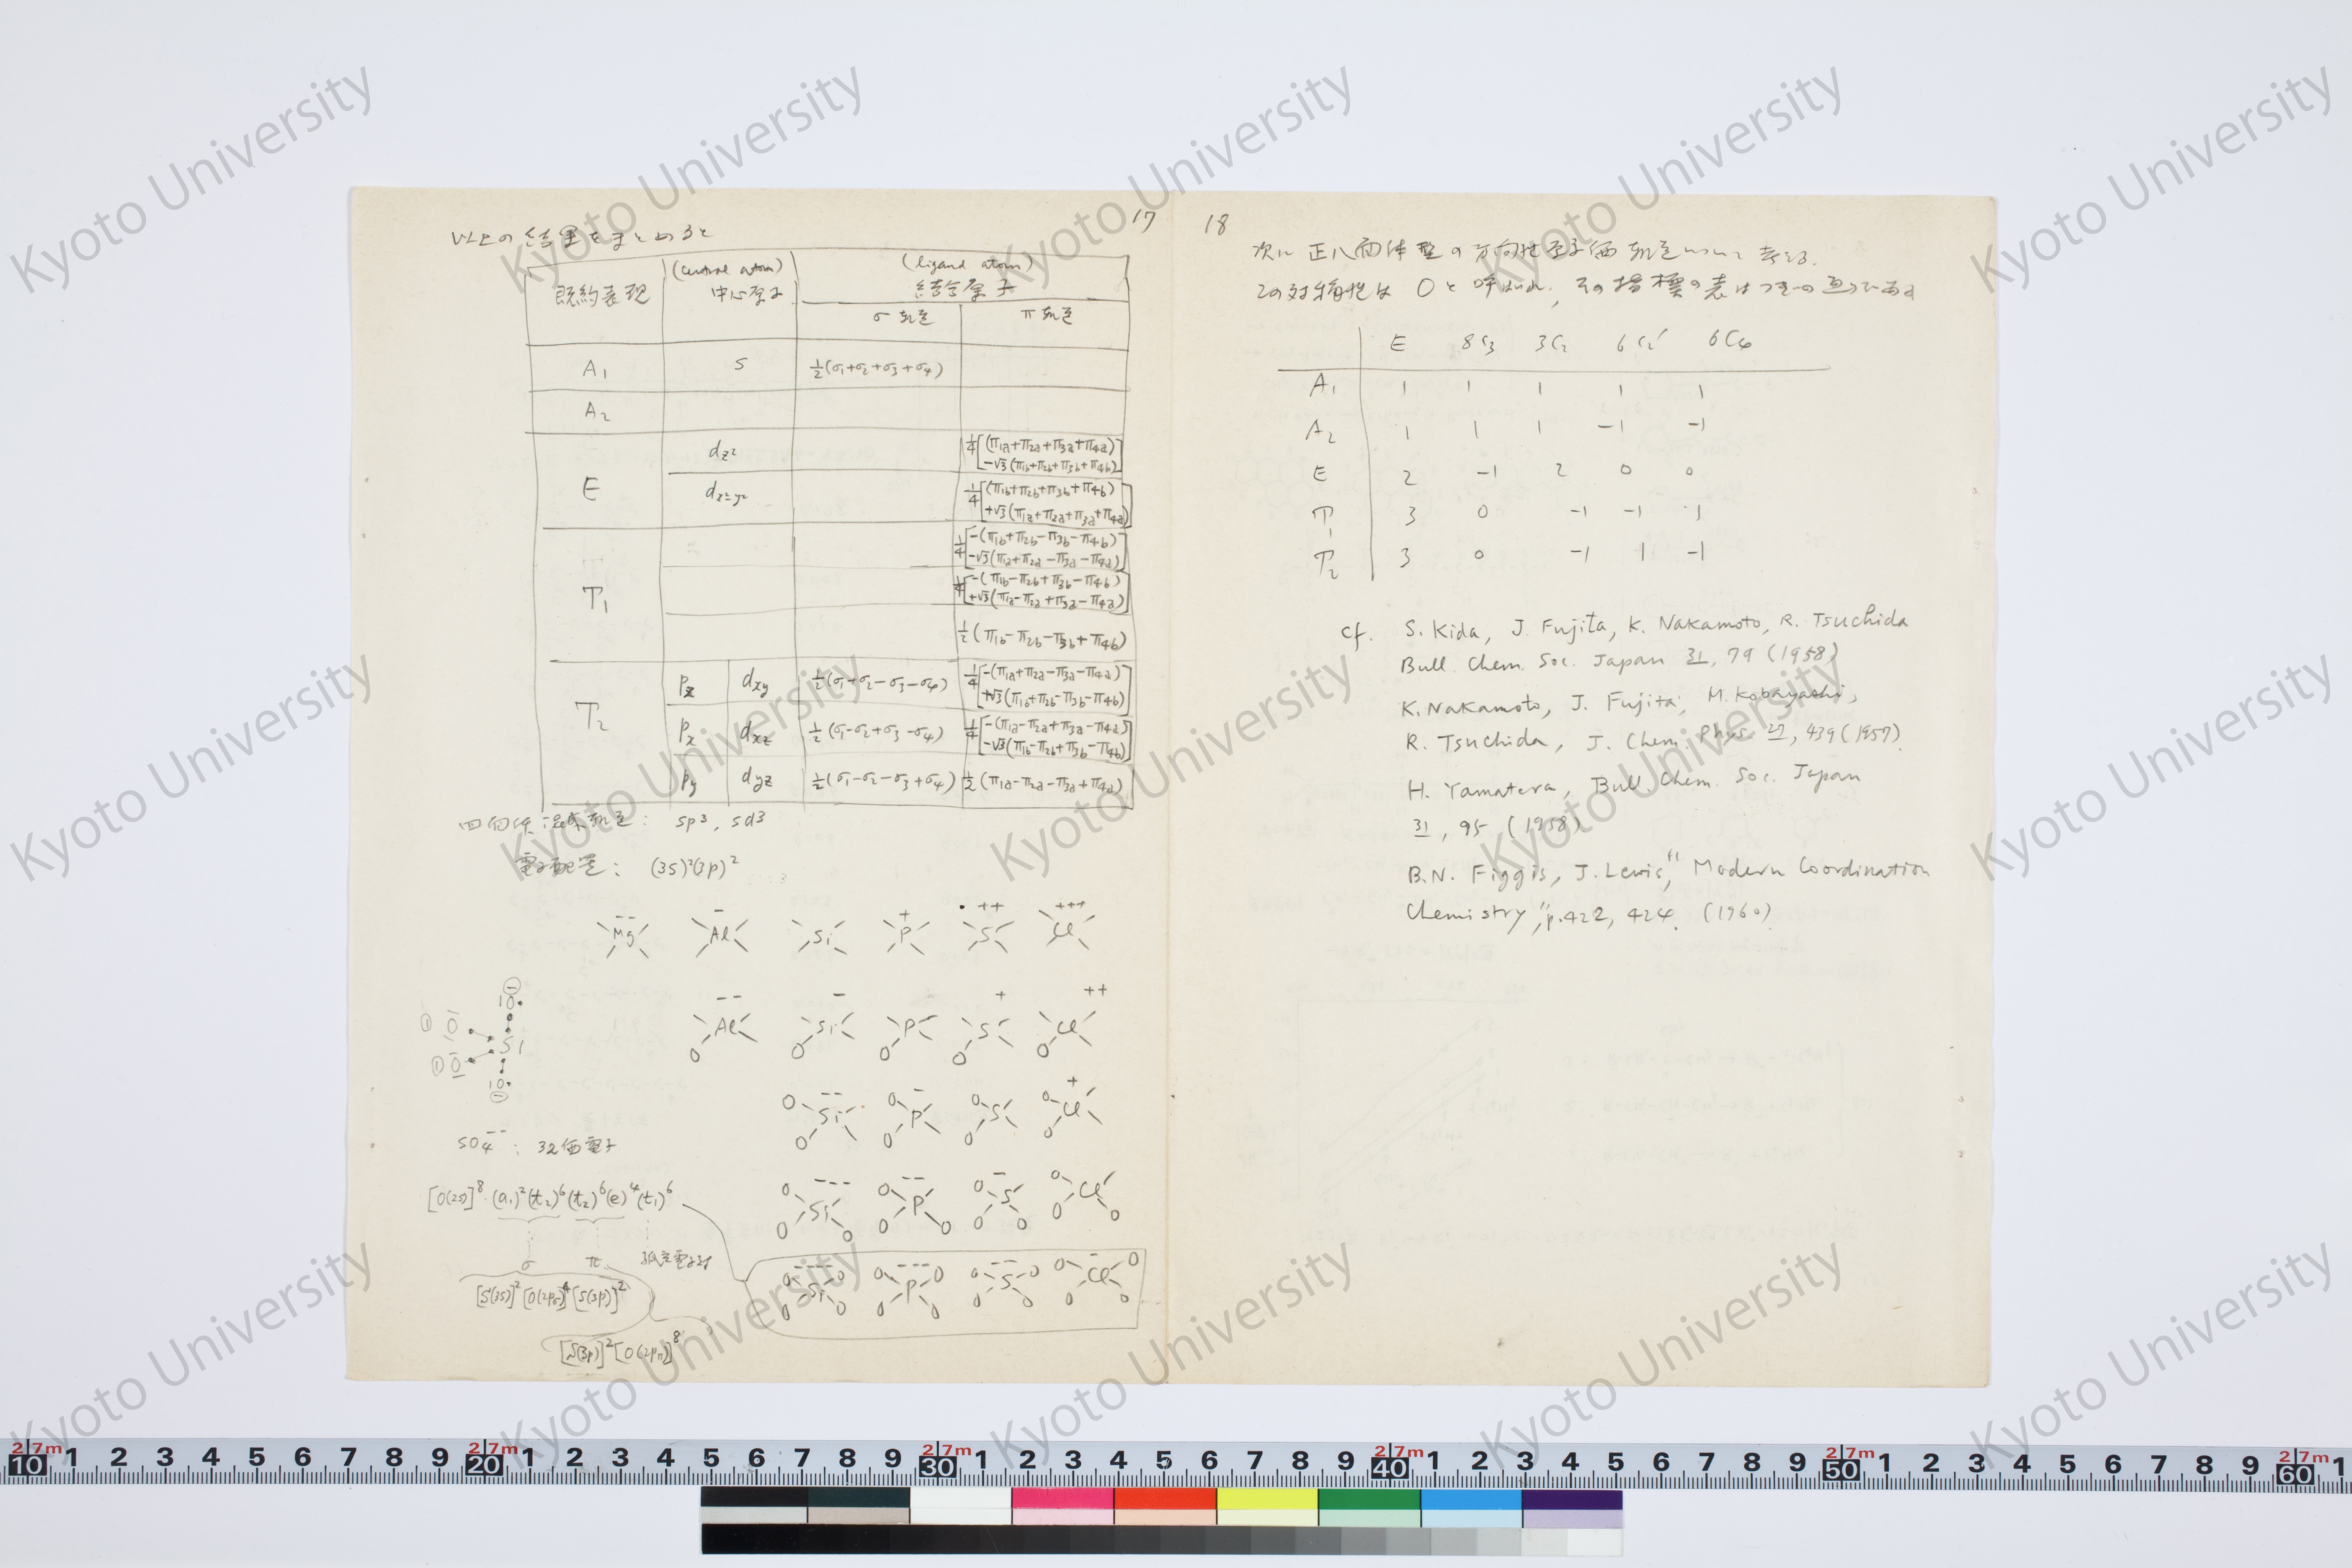 17
以上の結果をまとめると
既約表現 (central atom) 中心原子 (ligand atom) 結合原子
σ 軌道 π 軌道
A₁ s ½(σ₁+σ₂+σ₃+σ₄)
A₂
E d_z² ¼[(π₁a+π₂a+π₃a+π₄a)
−√3(π₁b+π₂b+π₃b+π₄b)]
d_x²-y² ¼[(π₁b+π₂b+π₃b+π₄b)
+√3(π₁a+π₂a+π₃a+π₄a)]
T₁ ¼[−(π₁b+π₂b−π₃b−π₄b)
−√3(π₁a+π₂a−π₃a−π₄a)]
¼[−(π₁b−π₂b+π₃b−π₄b)
+√3(π₁a−π₂a+π₃a−π₄a)]
½(π₁b−π₂b−π₃b+π₄b)
T₂ p_z d_xy ½(σ₁+σ₂−σ₃−σ₄) ¼[−(π₁a+π₂a−π₃a−π₄a)
+√3(π₁b+π₂b−π₃b−π₄b)]
p_x d_xz ½(σ₁−σ₂+σ₃−σ₄) ¼[−(π₁a−π₂a+π₃a−π₄a)
−√3(π₁b−π₂b+π₃b−π₄b)]
p_y d_yz ½(σ₁−σ₂−σ₃+σ₄) ½(π₁a−π₂a−π₃a+π₄a)
四面体混成軌道: sp³, sd³
電子配置: (3s)²(3p)²
Mg−− Al− Si P+ S++ Cl+++
Al−− Si− P S+ Cl++
O O O O O
O Si−− O P− O S O Cl+
O O O O
O Si−−− O P−− O S− O Cl
O O O O O O O O
O Si−−−− O O P−−− O O S−− O O Cl− O
O O O O O O O O
SO₄−− : 32価電子
[O(2s)]⁸·(a₁)²(t₂)⁶(t₂)⁶(e)⁴(t₁)⁶
σ π 孤立電子対
[S(3s)]²[O(2pσ)]⁴[S(3p)]²
[S(3p)]²[O(2pπ)]⁸
18
次に正八面体型の方向性原子価軌道について考える.
この対称性は O と呼ばれ, その指標の表はつぎの通りである
E 8C₃ 3C₂ 6C₂′ 6C₄
A₁ 1 1 1 1 1
A₂ 1 1 1 −1 −1
E 2 −1 2 0 0
T₁ 3 0 −1 −1 1
T₂ 3 0 −1 1 −1
cf. S. Kida, J. Fujita, K. Nakamoto, R. Tsuchida
Bull. Chem. Soc. Japan 31, 79 (1958)
K. Nakamoto, J. Fujita, M. Kobayashi,
R. Tsuchida, J. Chem. Phys. 27, 439 (1957).
H. Yamatera, Bull. Chem. Soc. Japan
31, 95 (1958)
B.N. Figgis, J. Lewis, "Modern Coordination
Chemistry", p.422, 424. (1960)